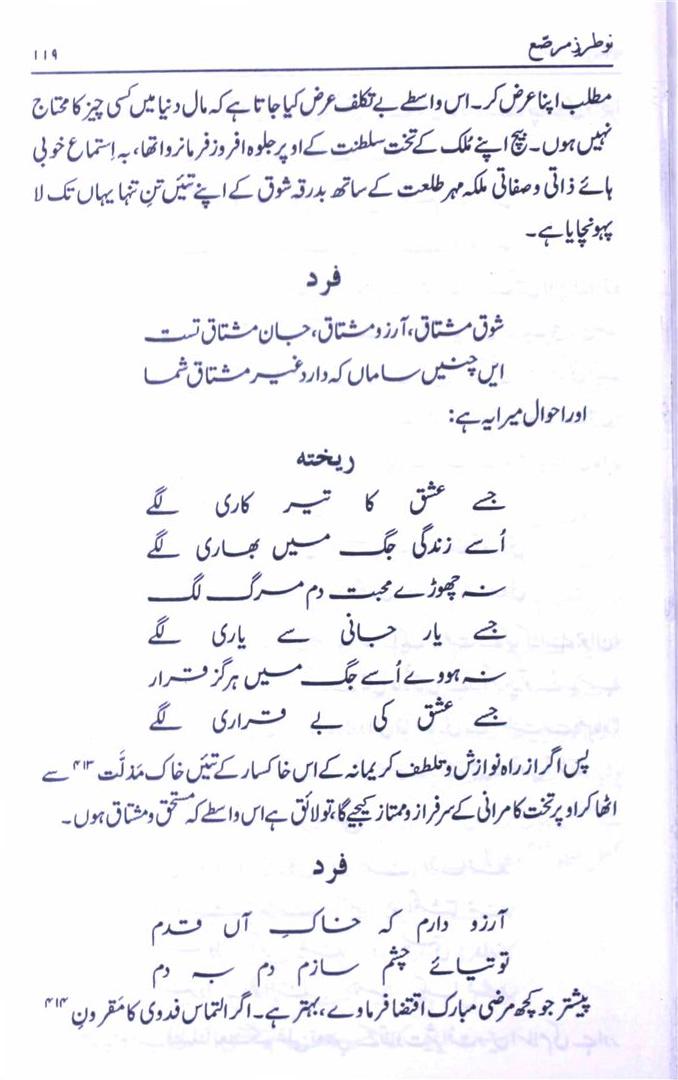 نو طرزِ مرصّع
۱۱۹
مطلب اپنا عرض کر۔ اس واسطے بے تکلف عرض کیا جاتا ہے کہ مال دنیا میں کسی چیز کا محتاج
نہیں ہوں۔ بیچ اپنے مُلک کے تخت سلطنت کے اوپر جلوہ افروز فرمانروا تھا، بہ اِستماع خوبی
ہائے ذاتی و صفاتی ملکہ مہر طلعت کے ساتھ بدرقہ شوق کے اپنے تئیں تنِ تنہا یہاں تک لا
پہونچایا ہے۔
فرد
شوق مشتاق، آرزو مشتاق، جان مشتاق تست
ایں چنیں ساماں کہ دارد غیر مشتاق شما
اور احوال میرا یہ ہے:
ریختہ
جسے عشق کا تیر کاری لگے
اُسے زندگی جگ میں بھاری لگے
نہ چھوڑے محبت دم مرگ لگ
جسے یار جانی سے یاری لگے
نہ ہووے اُسے جگ میں ہرگز قرار
جسے عشق کی بے قراری لگے
پس اگر از راہ نوازش و تلطف کریمانہ کے اس خاکسار کے تئیں خاک مَذلَّت ۴۱۳ سے
اٹھا کر اوپر تخت کامرانی کے سرفراز و ممتاز کیجیے گا، تو لائق ہے اس واسطے کہ مستحق و مشتاق ہوں۔
فرد
آرزو دارم کہ خاکِ آں قدم
توتیائے چشم سازم دم بہ دم
پیشتر جو کچھ مرضی مبارک اقتضا فرماوے، بہتر ہے۔ اگر التماس فدوی کا مَقرونِ ۴۱۴